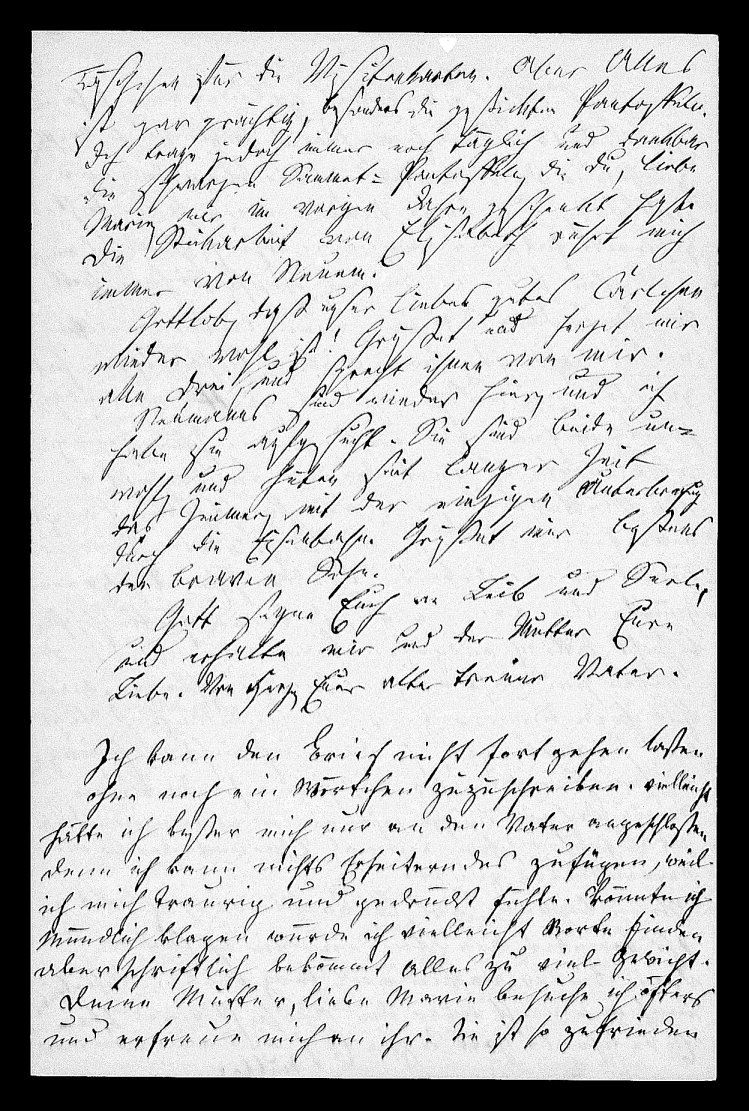 Täschchen für die Visitenkarten. Aber Alles
ist gar prächtig, besonders die gestickten Pantoffeln.
Ich trage jedoch immer noch täglich und dankbar
die schwarzen Sammet-Pantoffeln, die du, liebe
Marie mir im vorigen Jahre geschenkt hast.
Die Stickarbeit von Elisabeth rührt mich
immer von Neuem.
Gottlob, daß unser liebes gutes Carlchen
wieder wohl ist! Grüßet und herzet mir
alle drei, und sprecht ihnen von mir.
Neumanns sind wieder hier, und ich
habe sie aufgesucht. Sie sind beide un=
wohl, und hüten seit langer Zeit
das Zimmer, mit der einzigen Unterbrechung
durch die Eisenbahn. Grüßet mir bestens
den braven Sohn.
Gott segne Euch an Leib und Seele,
und erhalte mir und der Mutter Eure
Liebe. Von Herzen Euer alter treuer Vater.
Ich kann den Brief nicht fortgehen laßen
ohne noch ein Wörtchen zuzuschreiben. vielleicht
hätte ich beßer mich nur an den Vater angeschloßen,
denn ich kann nichts Erheiterndes zufügen, weil
ich mich traurig und gedrückt fühle. Könnte ich
Mündlich klagen würde ich vielleicht Worte finden
aber schriftlich bekommt alles zu viel Gewicht.
Deine Mutter, liebe Marie besuche ich öfters
und erfreue mich an ihr. Sie ist so zufrieden